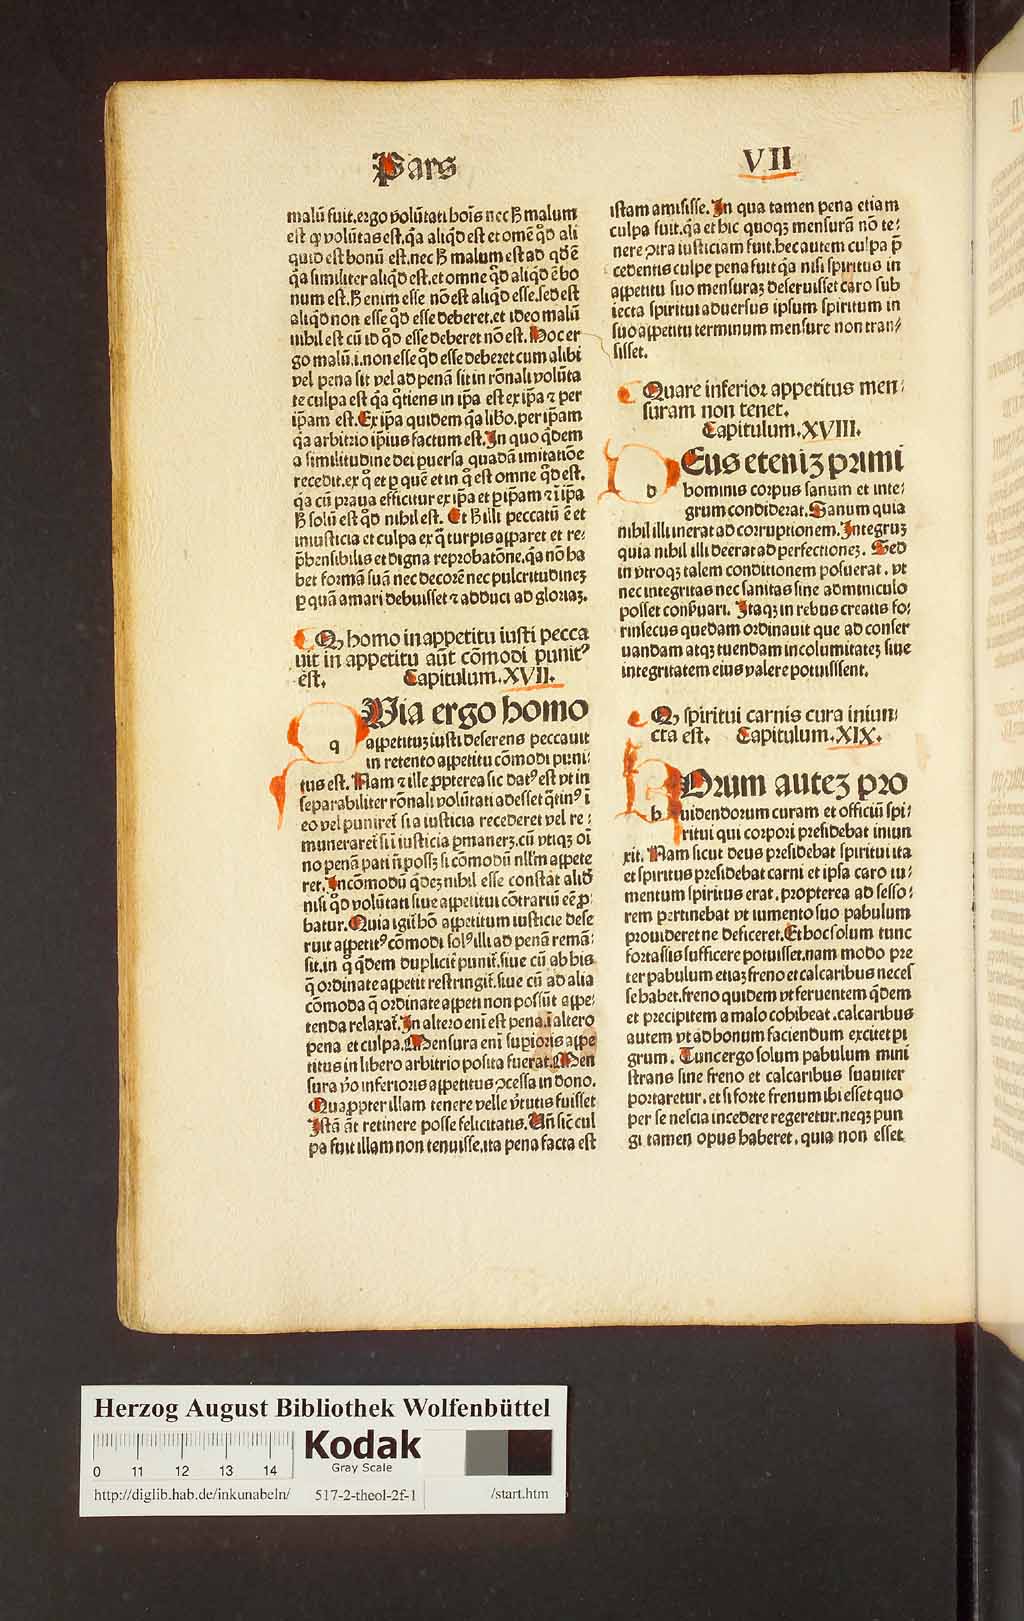 Pars
VII
malū fuit. ergo volūtati hoīs nec hͦ malum
est qꝫ volūtas est. q̄a aliqͥd est et omē qͦd ali
quid est bonū est. nec hͦ malum est ad qͦd ē
q̄a similiter aliqͥd est. et omne qͦd aliqͥd ē bo
num est. hͦ enim esse nō est aliqͥd esse. sed est
aliqͥd non esse qͦd esse deberet. et ideo malū
nihil est cū id qͦd esse deberet nō est. Hoc er
go malū .i. non esse qͦd esse deberet cum alibi
vel pena sit vel ad penā sit in rōnali volūta
te culpa est q̄a qͦtiens in ip̄a est ex ip̄a ⁊ per
ip̄am est. Ex ip̄a quidem q̄a libͦo. per ip̄am
q̄a arbitrio ip̄ius factum est. In quo qͥdem
a similitudine dei p̱uersa quadā imitatiōe
recedit. ex qͦ et ꝑ quē et in qͦ est omne qͦd est.
q̄a cū praua efficitur ex ip̄a et ꝑ ip̄am ⁊ ī ip̄a
hͦ solū est qͦd nihil est. Et hͦ illi peccatū ē et
iniusticia et culpa ex qͣ turpis apparet et re/
p̄hensibilis et digna reprobatōne. q̄a nō ha
bet formā suā nec decorē nec pulcritudineꝫ
ꝑ quā amari debuisset ⁊ adduci ad gloriaꝫ.
Qꝫ homo in appetitu iusti pecca
uit in appetitu aūt cōmodi punitꝰ
est. Capitulum. XVII.
q
QVia ergo homo
appetituꝫ iusti deserens peccauit
in retento appetitu cōmodi puni/
tus est. Nam ⁊ ille ꝓpterea sic datꝰ est vt in
separabiliter rōnali volūtati adesset qͣtinꝰ ī
eo vel puniret̄ si a iusticia recederet vel re/
muneraret̄ si ī iusticia ꝑmaneret. cū vtiqꝫ oī
no penā pati n̄ posset si cōmodū nllm̄ appete
ret. Incōmodū qͥdeꝫ nihil esse constat aliud
nisi qͦd volūtati siue appetitui cōtrariū eē ꝓ/
batur. Quia igit̄ hō appetitum iusticie dese
ruit appetitꝰ cōmodi solꝰ illi ad penā remā/
sit. in qͦ qͥdem duplicit̄ punit̄. siue cū ab his
q̄ ordinate appetit restringit̄. siue cū ad alia
cōmoda q̄ ordinate appeti non possūt appe/
tenda relaxat̄. In altero eni est pena. ī altero
pena et culpa. Mensura eni sup̱ioris appe
titus in libero arbitrio posita fuerat. Men
sura v̄o inferioris appetitus ꝯcessa in dono.
Quapropter illam tenere velle v̄tutis fuisset
Istā āt retinere posse felicitatis. Un̄ sic̄ cul
pa fuit illam non tenuisse. ita pena facta est
istam amisisse. In qua tamen pena etiam
culpa fuit. q̄a et hic quoqꝫ mensurā nō te/
nere ꝯtra iusticiam fuit. hec autem culpa p̄
cedentis culpe pena fuit q̄a nisi spiritus in
appetitu suo mensuraꝫ deseruisset caro sub
iecta spiritui aduersus ipsum spiritum in
suo appetitu terminum mensure non tran/
sisset.
Quare inferior appetitus men/
suram non tenet.
Capitulum. XVIII.
d
DEus eteniꝫ primi
hominis corpus sanum et inte/
grum condiderat. Sanum quia
nihil illi inerat ad corruptionem. Integruꝫ
quia nihil illi deerat ad perfectioneꝫ. Sed
in vtroqꝫ talem conditionem posuerat. vt
nec integritas nec sanitas sine adminiculo
posset conẜuari. Itaqꝫ in rebus creatis fo/
rinsecus quedam ordinauit que ad conser
uandam atqꝫ tuendam incolumitateꝫ siue
integritatem eius valere potuissent.
Qꝫ spiritui carnis cura iniun/
cta est. Capitulum. XIX.
h
HOrum auteꝫ pro
uidendorum curam et officiū spi/
ritui qui corpori presidebat iniun
xit. Nam sicut deus presidebat spiritui ita
et spiritus presidebat carni et ipsa caro iu/
mentum spiritus erat. propterea ad sesso/
rem pertinebat vt iumento suo pabulum
prouideret ne deficeret. Et hoc solum tunc
fortassis sufficere potuisset. nam modo pre
ter pabulum etiaꝫ freno et calcaribus neces
se habet. freno quidem vt feruentem qͥdem
et precipitem a malo cohibeat. calcaribus
autem vt ad bonum faciendum excitet pi
grum. Tunc ergo solum pabulum mini
strans sine freno et calcaribus suauiter
portaretur. et si forte frenum ibi esset quo
per se nescia incedere regeretur. neqꝫ pun
gi tamen opus haberet. quia non esset
Herzog August Bibliothek Wolfenbüttel
Kodak
Gray Scale
0 11 12 13 14
http://diglib.hab.de/inkunabeln/ 517-2-theol-2f-1 /start.htm